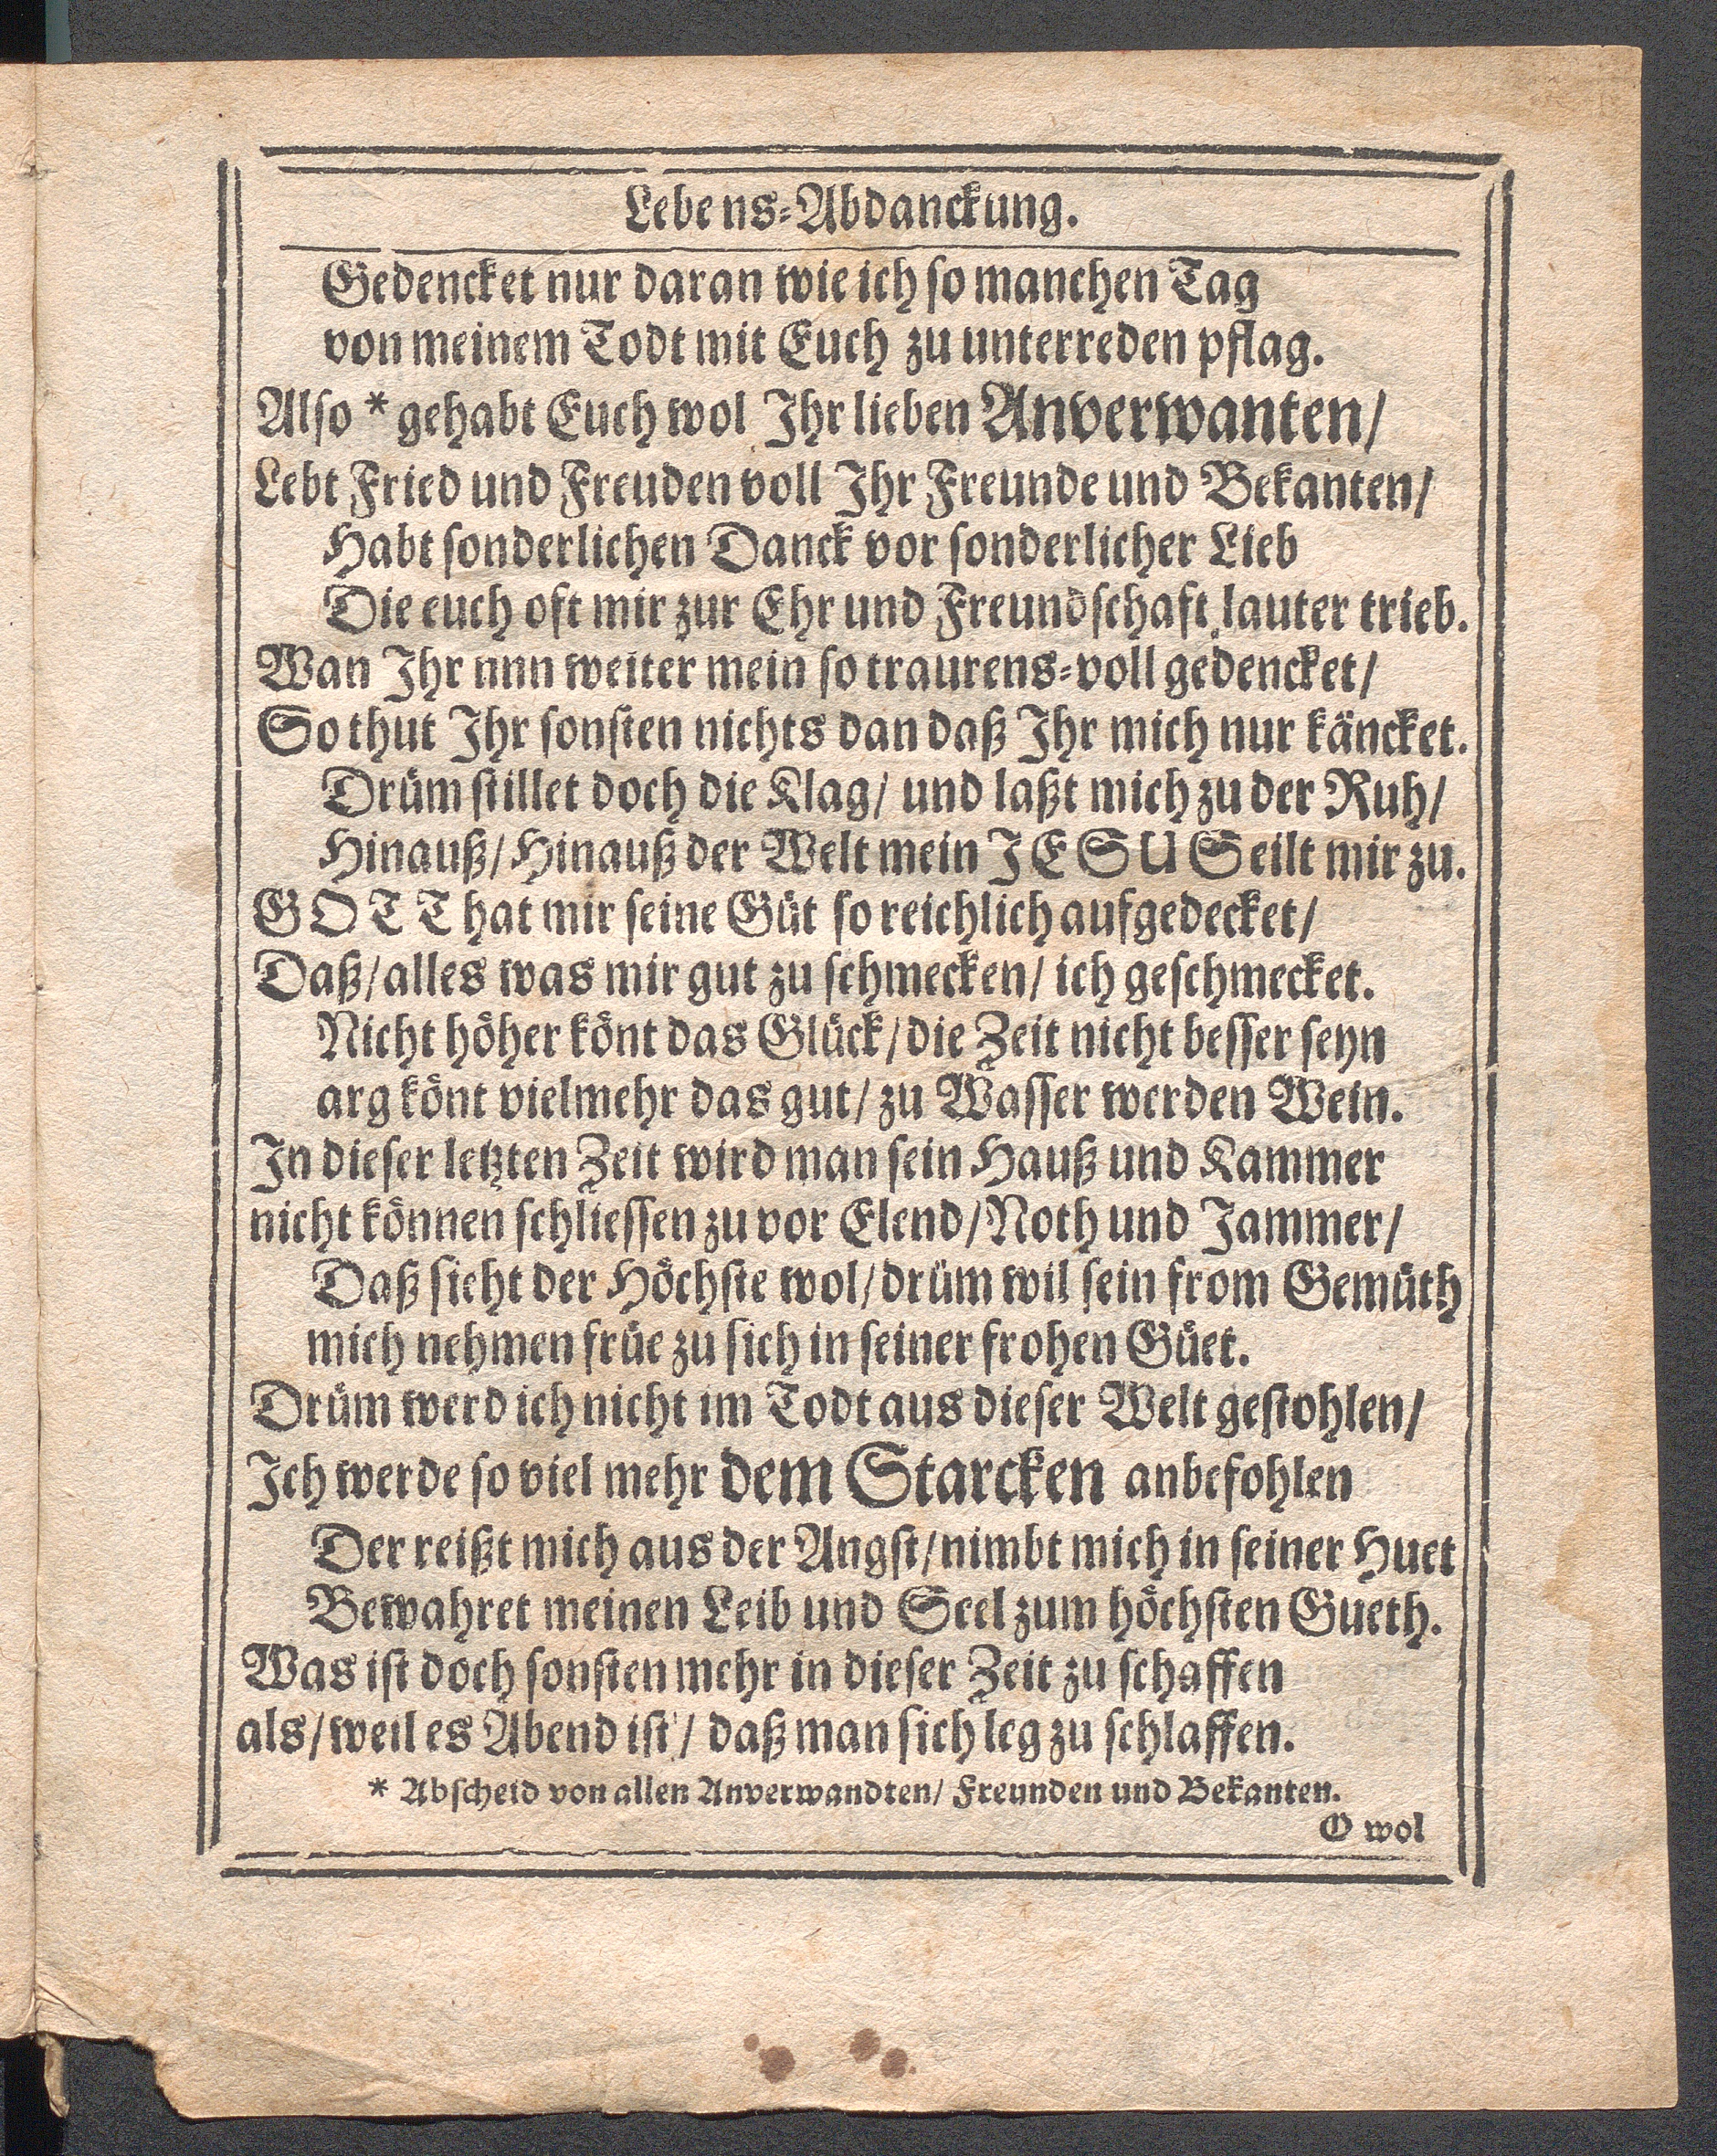 Lebens-Abdanckung.
Gedencket nur daran wie ich so manchen Tag
von meinem Todt mit Euch zu unterreden pflag.
Also * gehabt Euch wol Ihr lieben Anverwanten/
Lebt Fried und Freuden voll Ihr Freunde und Bekanten/
Habt sonderlichen Danck vor sonderlicher Lieb
Die euch oft mir zur Ehr und Freundschaft lauter trieb.
Wan Ihr nnn weiter mein so traurens-voll gedencket/
So thut Ihr sonsten nichts dan daß Ihr mich nur käncket.
Drüm stillet doch die Klag/ und laßt mich zu der Ruh/
Hinauß/ Hinauß der Welt mein JESUS eilt mir zu.
GOTT hat mir seine Güt so reichlich aufgedecket/
Daß/ alles was mir gut zu schmecken/ ich geschmecket.
Nicht höher könt das Glück/ die Zeit nicht besser seyn
arg könt vielmehr das gut/ zu Wasser werden Wein.
In dieser letzten Zeit wird man sein Hauß und Kammer
nicht können schliessen zu vor Elend/ Noth und Jammer/
Daß sieht der Höchste wol/ drüm wil sein from Gemüth
mich nehmen früe zu sich in seiner frohen Güet.
Drüm werd ich nicht im Todt aus dieser Welt gestohlen/
Ich werde so viel mehr dem Starcken anbefohlen
Der reißt mich aus der Angst/ nimbt mich in seiner Huet
Bewahret meinen Leib und Seel zum höchsten Gueth.
Was ist doch sonsten mehr in dieser Zeit zu schaffen
als/ weil es Abend ist/ daß man sich leg zu schlaffen.
* Abscheid von allen Anverwandten/ Freunden und Bekanten.
O wol